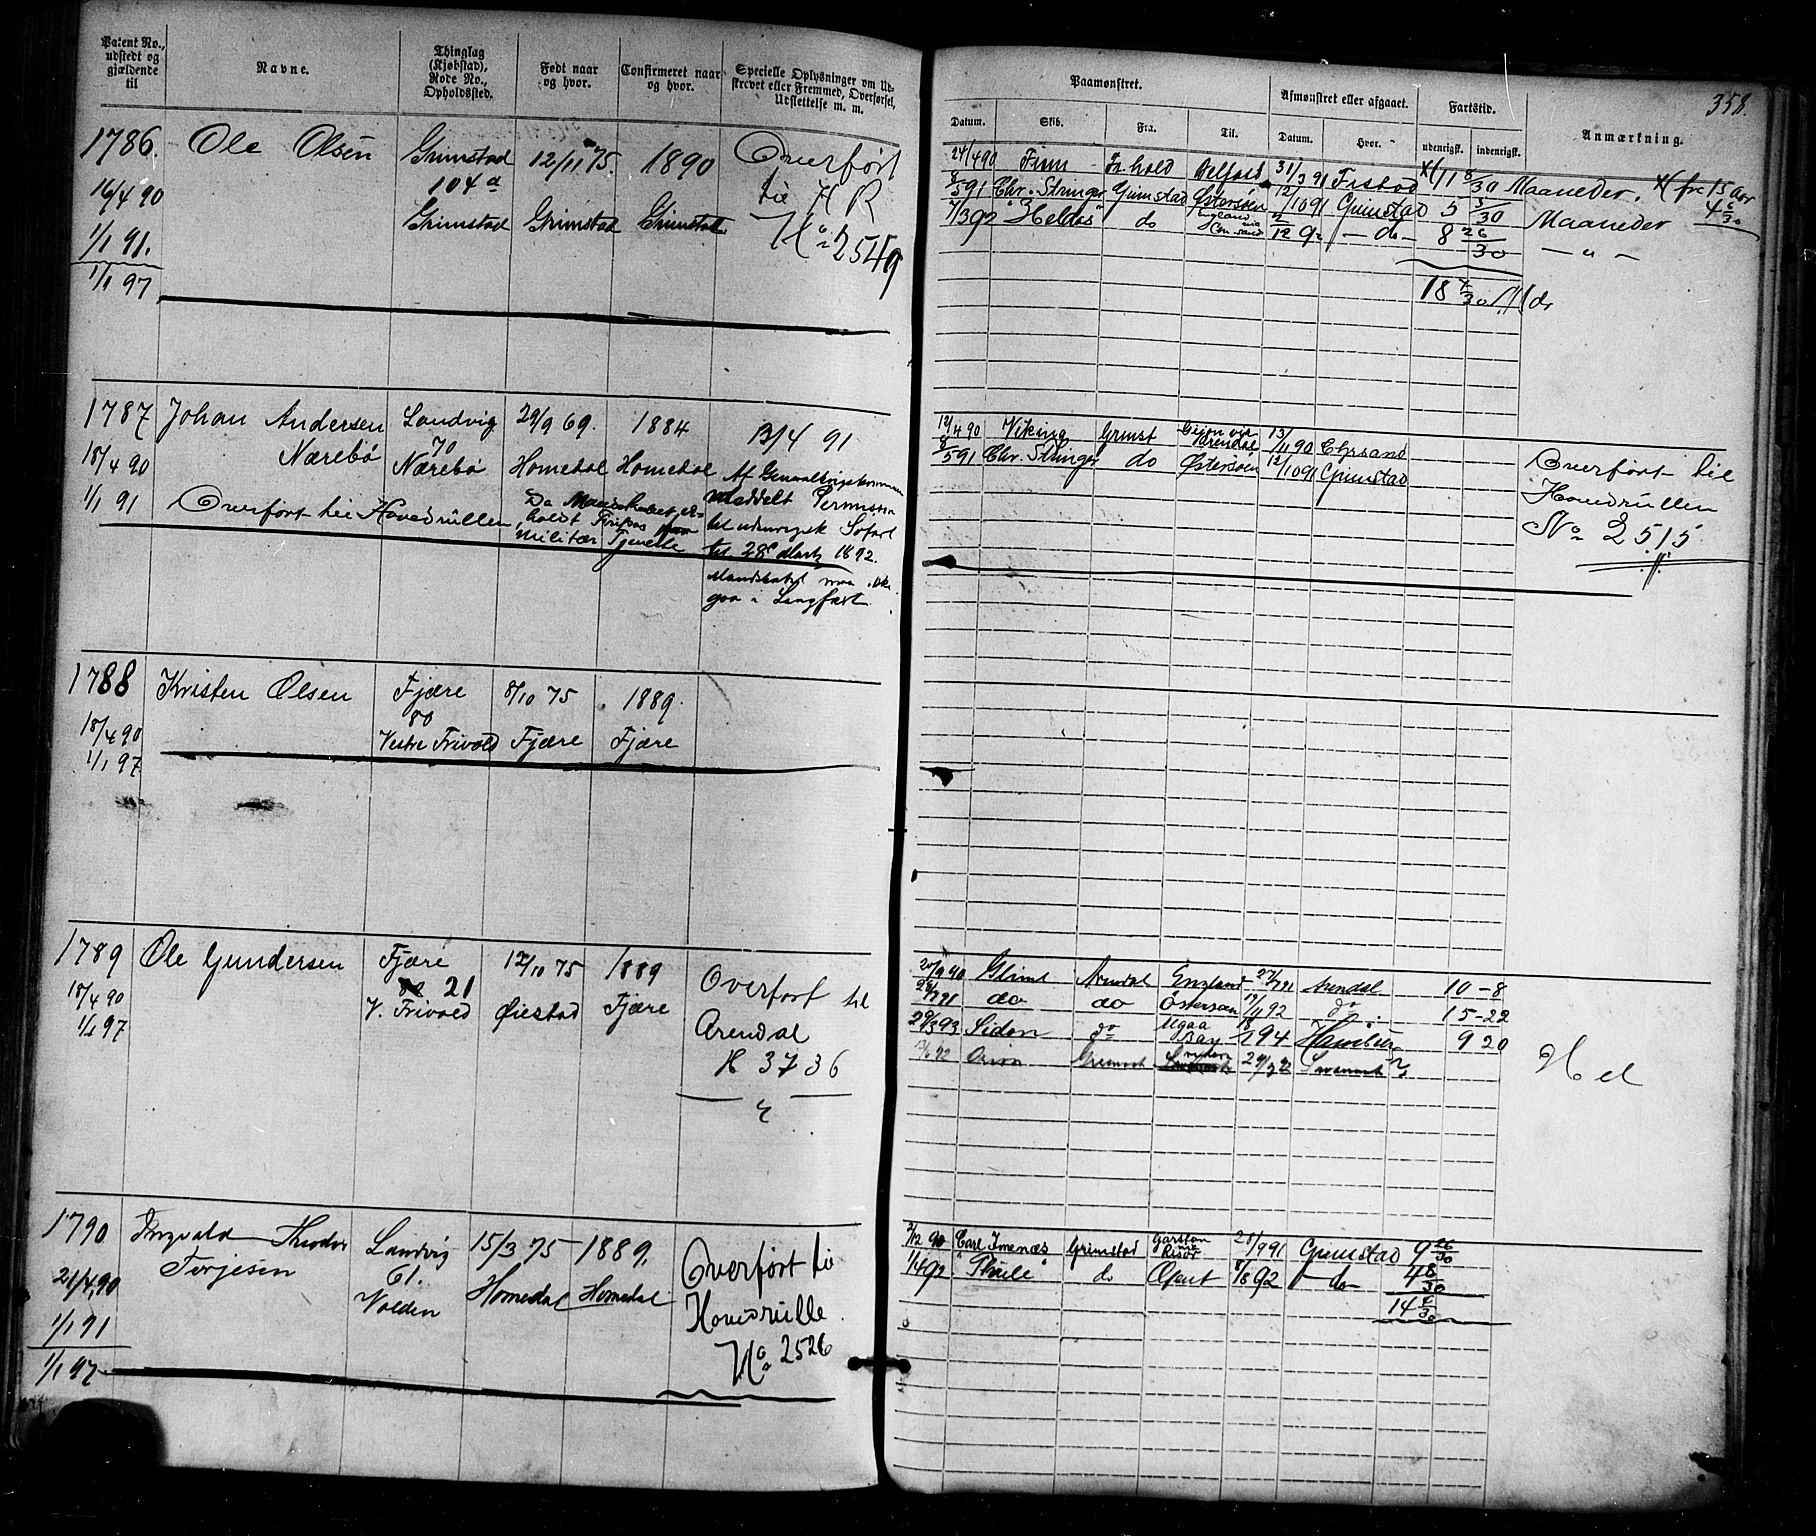 Patent No., udstedt og gjældende til
Navne.
Thinglag (Kjøbstad), Rode No., Opholdssted.
Født naar og hvor.
Confirmeret naar og hvor.
Specielle Oplysninger om Udskrevet eller Fremmed, Overførsel, Udslettelse m. m.
1786. Ole Olsen Grimstad 12/11 75. 1890 Overført
16/4 90 104 a til H R
Grimstad Grimstad Grimstad No 2549
1/1 91.
1/1 97
1787 Johan Andersen Landvig 29/9 69. 1884 13/4 91
Nærebø 70
18/4 90 Nærebø Homedal Homedal Af
1/1 91 Overført til Hovedrullen Da Mandskabet er- meddelt Permission
holdt Fripas til udenrigsk Søfart
Militær Tjeneste til 28de Marts 1892.
Mandskabet maa ikke
gaa i Langfart
1788 Kristen Olsen Fjære 8/10 75 1889.
80
18/4 90 Vestre Frivold Fjære Fjære
1/1 97
1789 Ole Gundersen Fjære 12/10 75 1889 Overført til
18/4 90 21
V. Frivold Øiestad Fjære Arendal
1/1 97 H 3736
1790 Ingvald Theodor Landvig 15/3 75 1889. Overført til
Terjesen 61.
21/4 90 Volden Homedal Homedal Hovedrulle
1/1 91 No 2526
1/1 97
358.
Paamønstret.
Afmønstret eller afgaaet.
Fartstid.
Anmærkning.
Datum. Skib. Fra. Til. Datum. Hvor. udenrigsk. indenrigsk.
24/4 90 Frhold Belfast 31/3 91 Maaneder. fra 15 Aar
8/5 91 Chr. Stranger Grimstad Østersøen 12/10 91 Grimstad 5 /30 Maaneder
7/3 92 "Heldos" do England 12 92 - do - 8 26/30 - " -
18 /30 Mdr
19/4 90 Viking Grimst Arendal 13/11 90 Chrsand
8/5 91 Chr. Stranger do Østersøen 12/10 91 Grimstad
Overført til
Hovedrullen
No 2515
20/9 90 Glimt Arendal England 27/ 91 Arendal 10-8
91 do do Østersøen 92 do 15-22
29/3 93 Sidon do Bay 94 9 20
92 Grimst
1/12 90 Carl Grimstad Garston Risør 28/9 91 Grimstad 9 26/30
1/4 92 "Thule" do 8/8 92 - do - 4 8/30
14 4/30